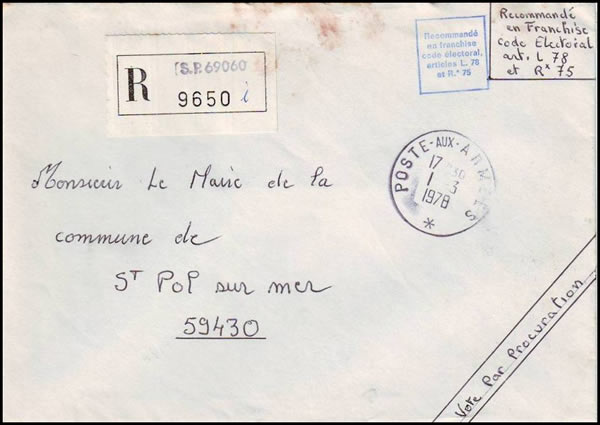 R
S.P. 69060
9650 i
Recommandé
en franchise
code électoral,
articles L. 78
et R.* 75
Recommandé
en Franchise
code Électoral
art. L 78
et Rx 75
POSTE-AUX-ARMÉES
17 30
1 3
1978
*
Monsieur Le Maire de la
commune de
ST POP sur mer
59430
Vote Par Procuration